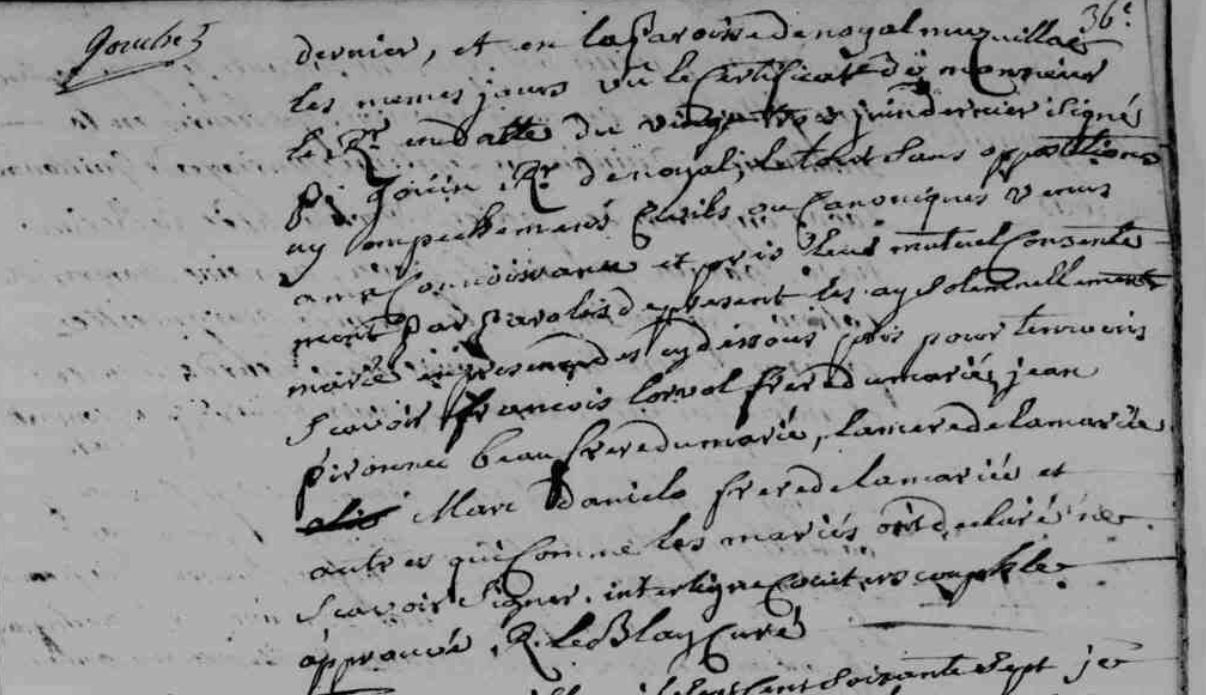 36e
dernier, et en la paroisse de noyal muzuillac
les memes jours vû le Certificat de monsieur
le Rr en datte du vingt juin dernier signé
p: Jouin Rr de noyal, le tout sans oppositions
ny empeschements Civils ou Canoniques venus
a ma Connoissance et pris leur mutuel Consente
ment par paroles de present les ay solemnellement
mariés presents cydessous pris pour temoins
scavoir françois lorvol frere du marié, jean
pironnec beaufrere du marié, la mere de la mariée
Marc Daniélo frere de la mariée et
autres qui Comme les mariés ont declaré ne
scavoir signer, interligne
approuvé, R. le Blay Curé
Cent soixante sept je